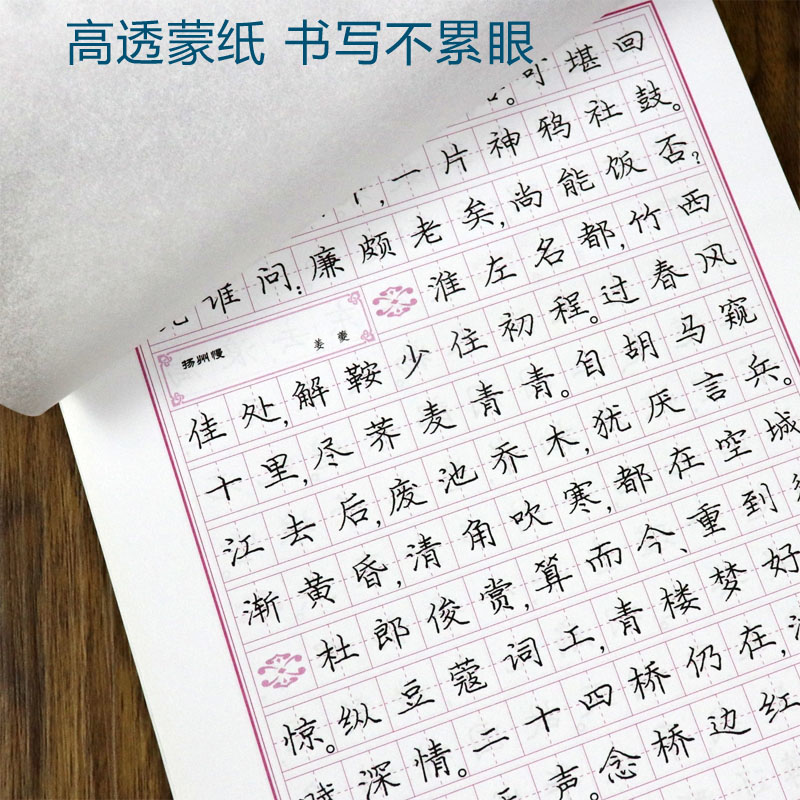 高透蒙纸 书写不累眼
。可堪回
,一片神鸦社鼓。
谁问:廉颇老矣,尚能饭否?
扬州慢 姜夔
淮左名都,竹西
佳处,解鞍少住初程。过春风
十里,尽荠麦青青。自胡马窥
江去后,废池乔木,犹厌言兵。
渐黄昏,清角吹寒,都在空城
杜郎俊赏,算而今、重到
惊。纵豆蔻词工,青楼梦好
赋深情。二十四桥仍在,
声。念桥边红